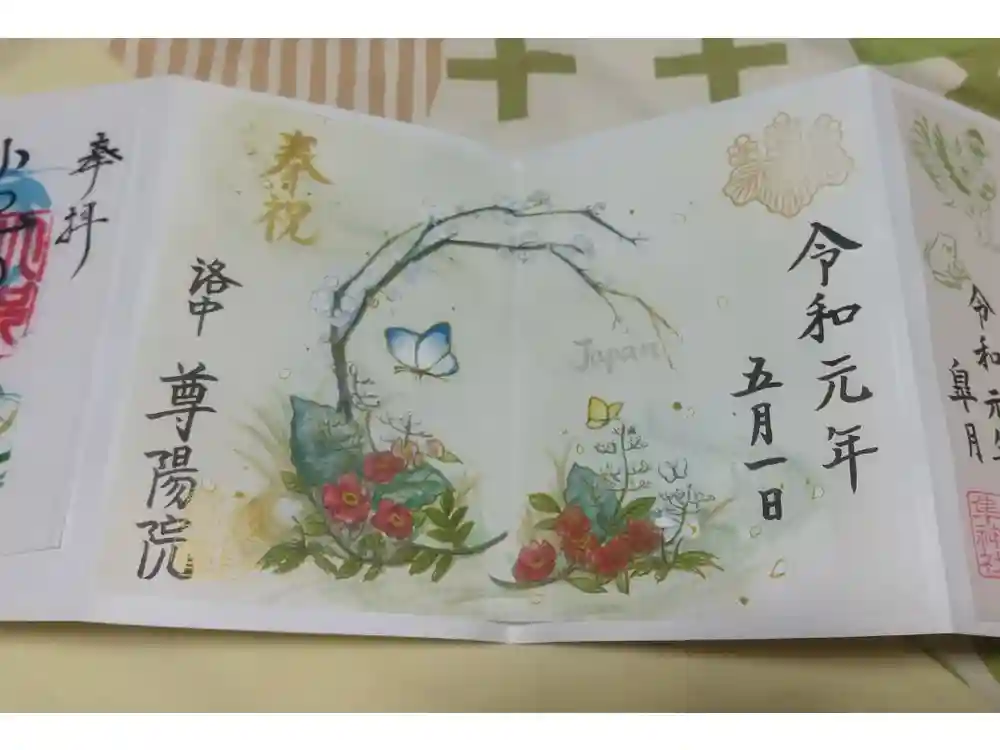 令和元年
五月一日
Japan
奉祝
洛中
尊陽院
奉拝
令和元年
皐月